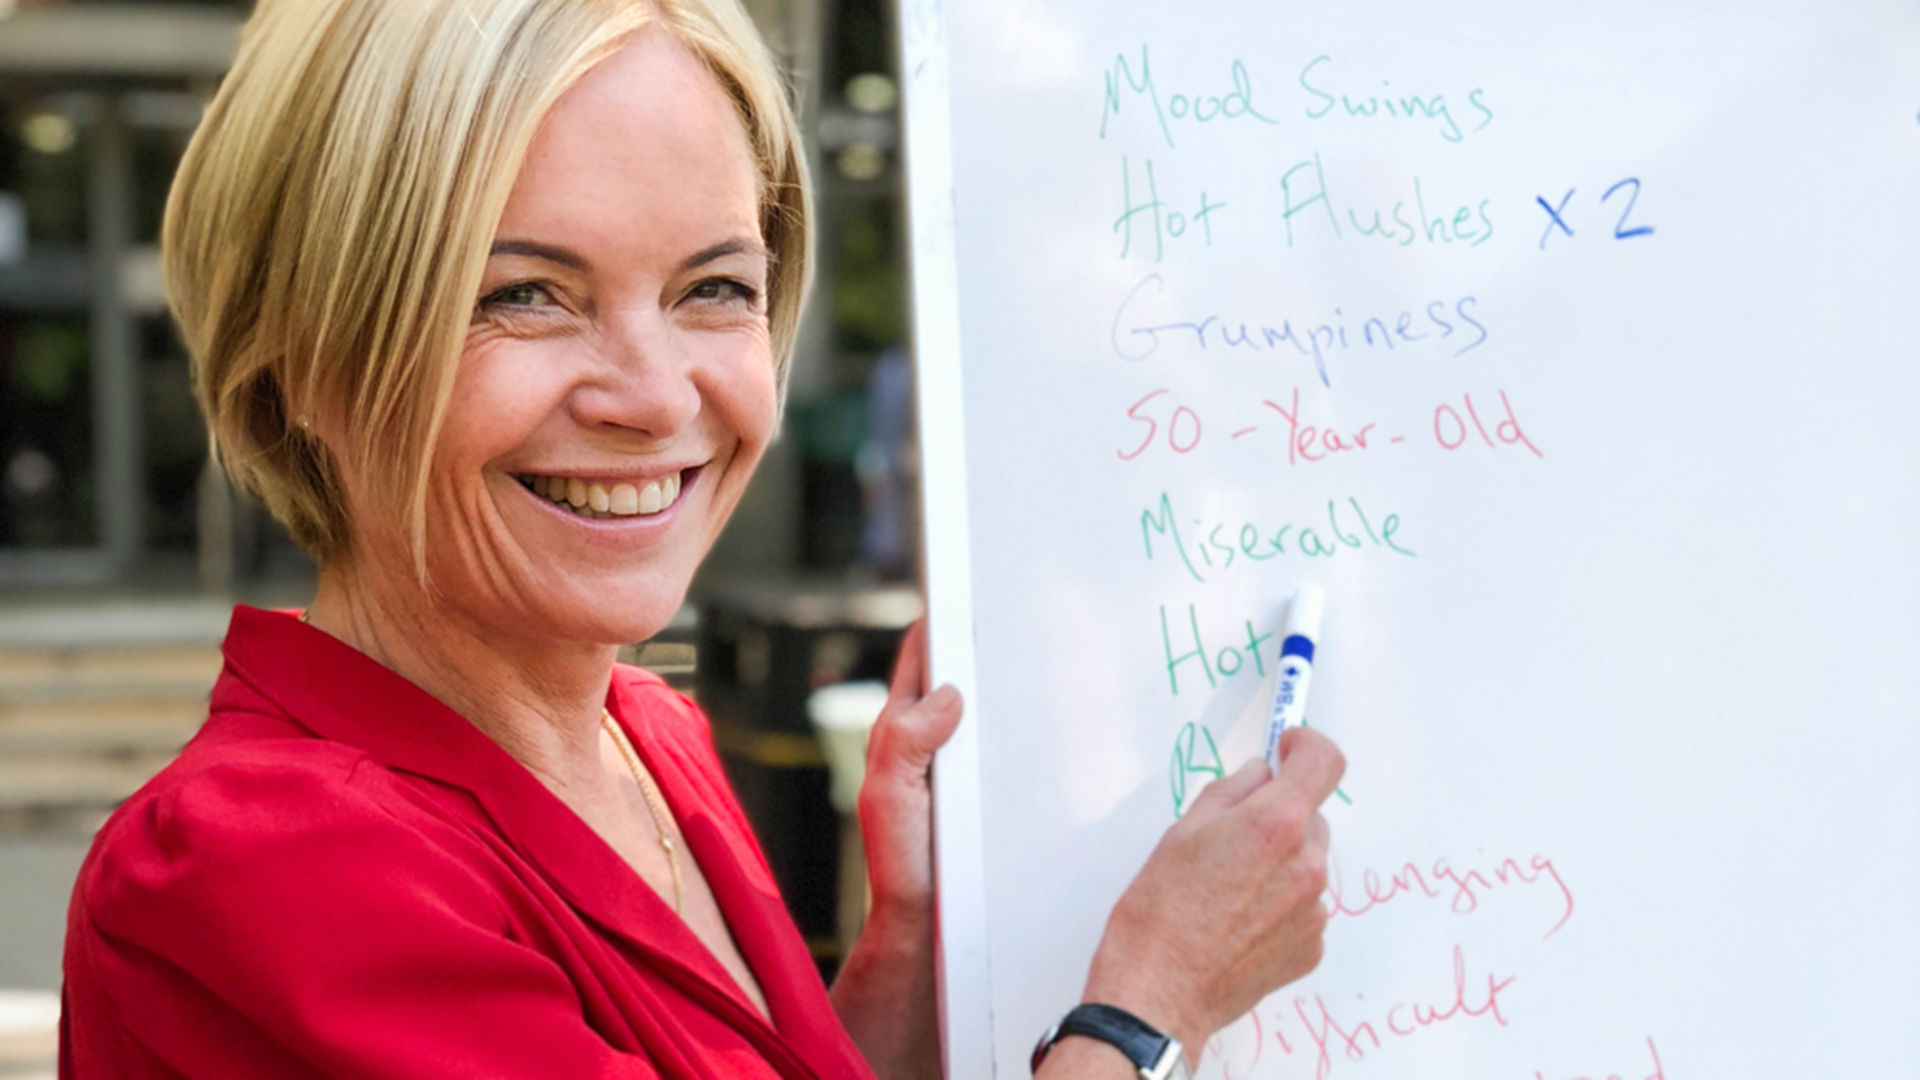 Mood Swings
Hot Flushes x 2
Grumpiness
50-Year-Old
Miserable
Hot
Difficult